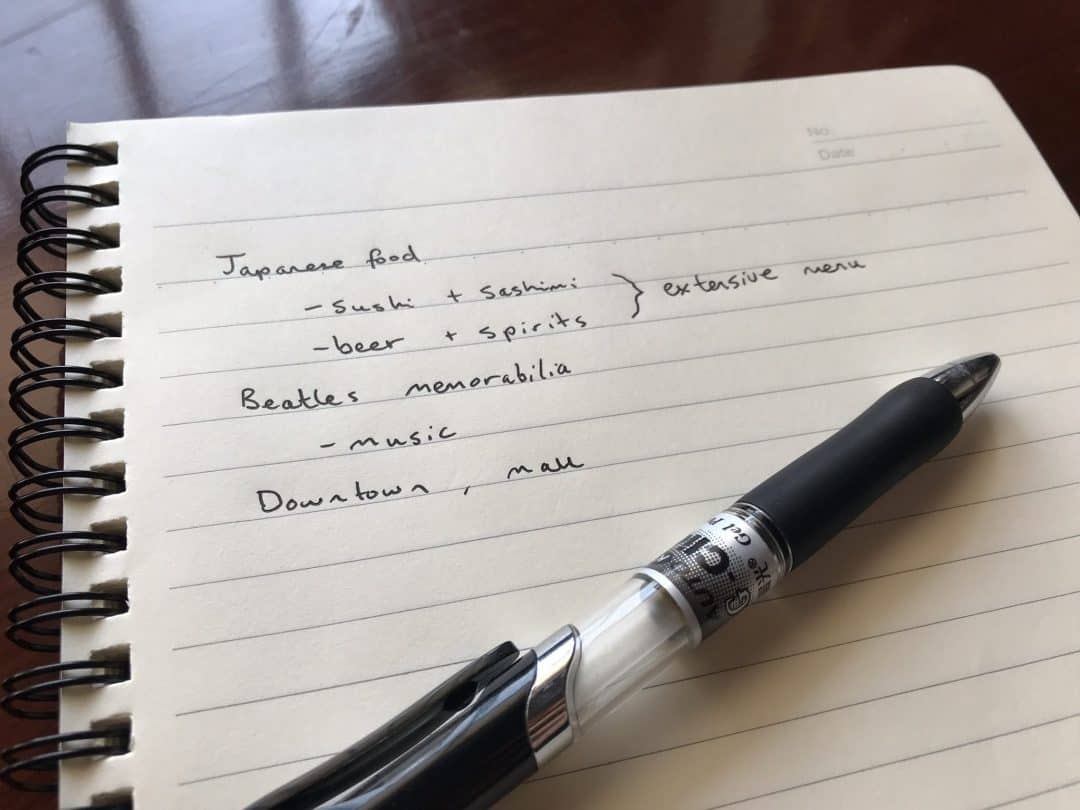 No.
Date
Japanese food
- sushi + sashimi } extensive menu
- beer + spirits
Beatles memorabilia
- music
Downtown, mall
Gel P